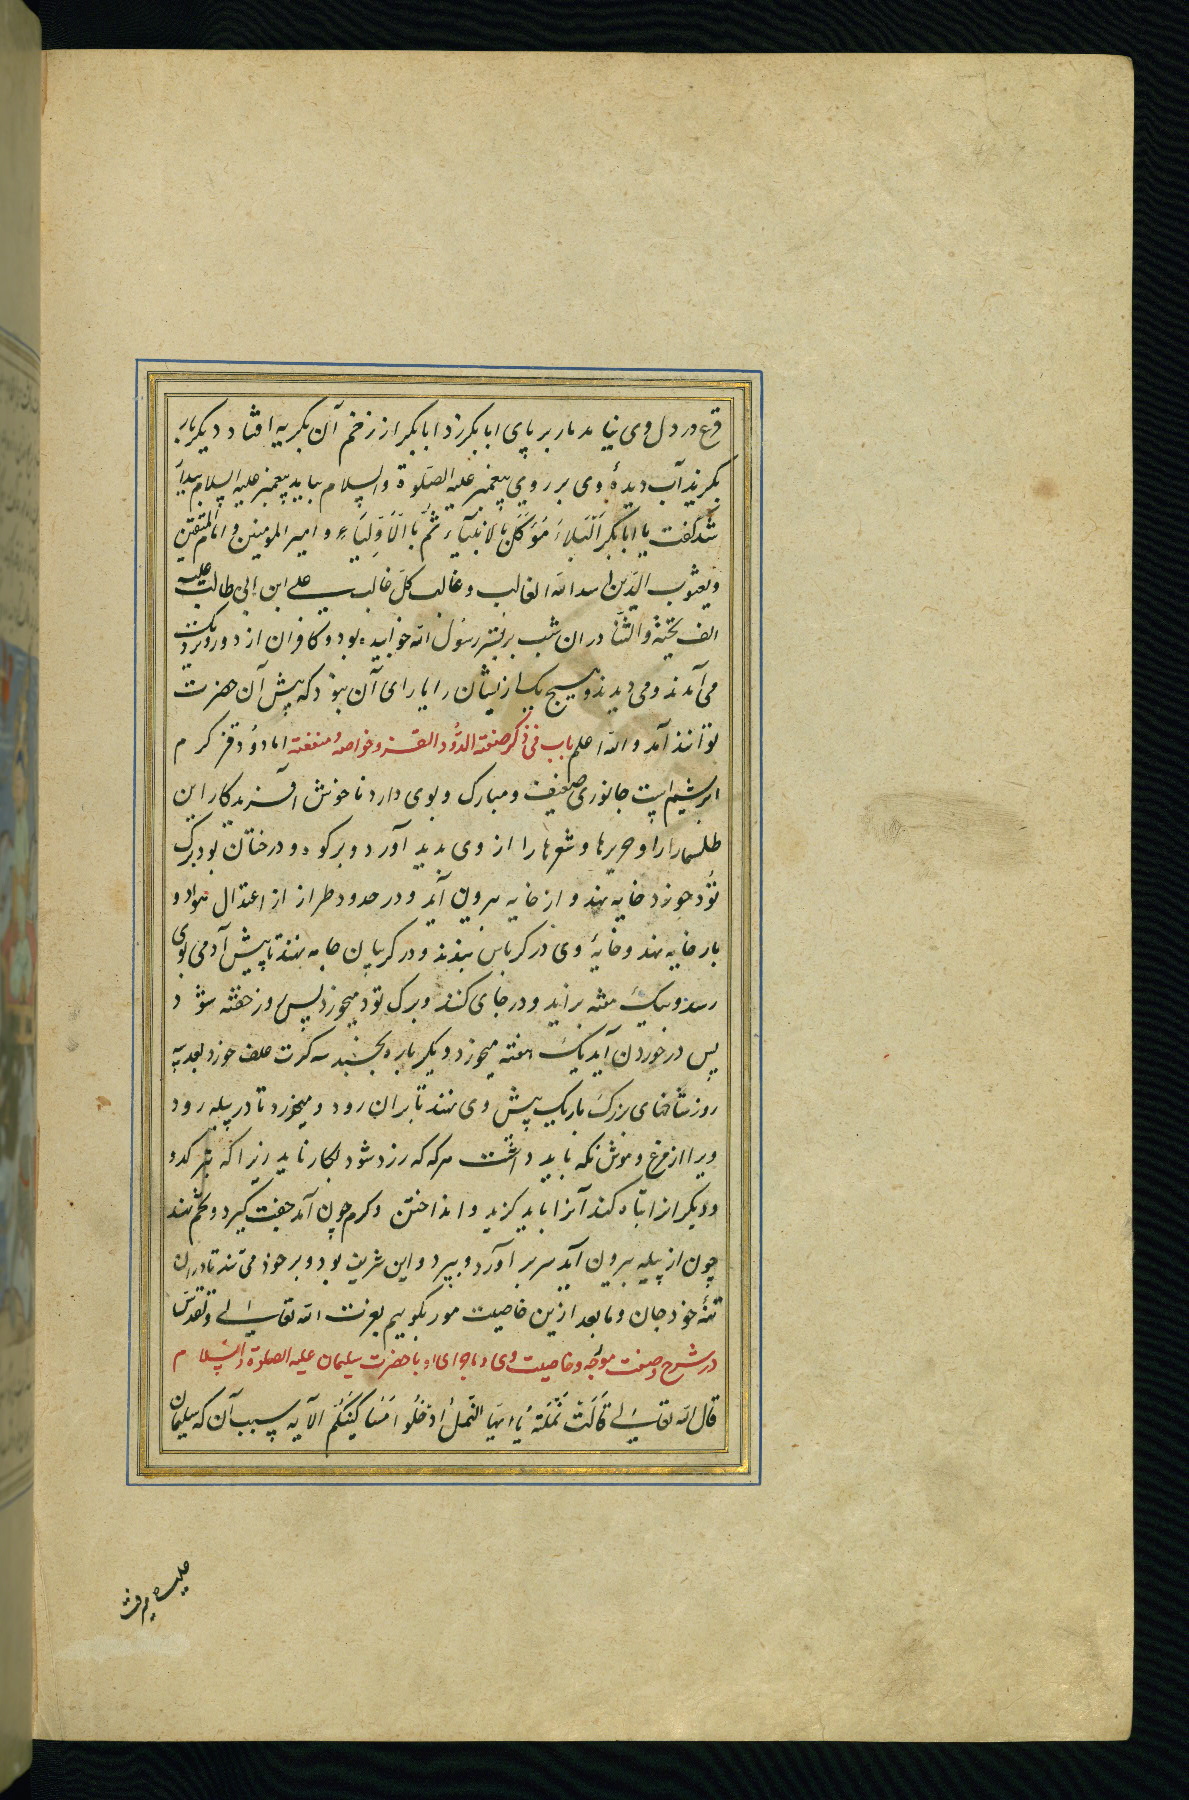 در دل وی نیامد مار بر پای ابابکر زد ابابکر از زخم آن بگریه افتاد دیگر بار
آب دیدهٔ وی بر روی پیغمبر علیه الصلوة والسلام بیاید پیغمبر علیه السلام بیدار
شد گفت یا ابابکر اَلْبَلاءُ مُوَکَّلٌ بالانبیآءِ ثُمَّ بالْاَوْلِیَاءِ و امیر المؤمنین و امام المتقین
ویعسوب الدّین اسد الله الغالب و غالب کلّ غالب علی ابن ابی طالب علیه
الف تحیّة والثّنا در ان شب بر بستر رسول الله خوابیده بود و کافران از دور و نزدیک
می آمدند و می دیدند و هیچ یک از ایشان را یارای آن نبود که پیش آن حضرت
توانند آمد والله اعلم باب فی ذکر صفة الدّود القز و خواصه و منفعته امادود قز کرم
ابریشم است جانوری ضعیف و مبارک و بوی دارد ناخوش آفریدگار این
طلسمها را و حریرها و شعرها را از وی بدید آورد و بر کوه و درختان تود برک
تود خورد خایه نهد و از خایه بیرون آید و در حدود طراز از اعتدال هوا دو
بار خایه نهد و خایهٔ وی در کرباس بندند و در کریبان جامه نهند تا پیش آدمی بوی
رسد و بیک هفته براید و در جای کند و برک تود میخورد پس روز خفته شود
پس در خوردن آید یک هفته میخورد دیگر باره بخسبد سه کرت علف خورد بعد به
روز شاخهای بزرک باریک پیش وی نهند تا بران رود و میخورد تا در پیله رود
ویرا از مرغ و موش نگه باید داشت هر که که زرد شود بکار ناید زیرا که بتر کدو
و دیگر انرا تباه کند آنرا باید کزید و انداختن و کرم چون آمد جفت گیرد و تخم نهد
چون از پیله بیرون آید سر بر آورد و بپرد و این شریف بود و بر خود می تند تا دران
تنهٔ خود جان و ما بعد ازین خاصیت مور بگوییم بعزت الله تعالی و تقدس
در شرح و صفت مورچه و خاصیت وی و ماجرای او با حضرت سلیمان علیه الصلوة والسّلام
قال الله تعالی قَالَتْ نَمْلَةٌ یَا اَیُّهَا النَّمْلُ ادْخُلُوا مَسَاکِنَکُمْ الآیه سبب آن که سلیمان
علیه